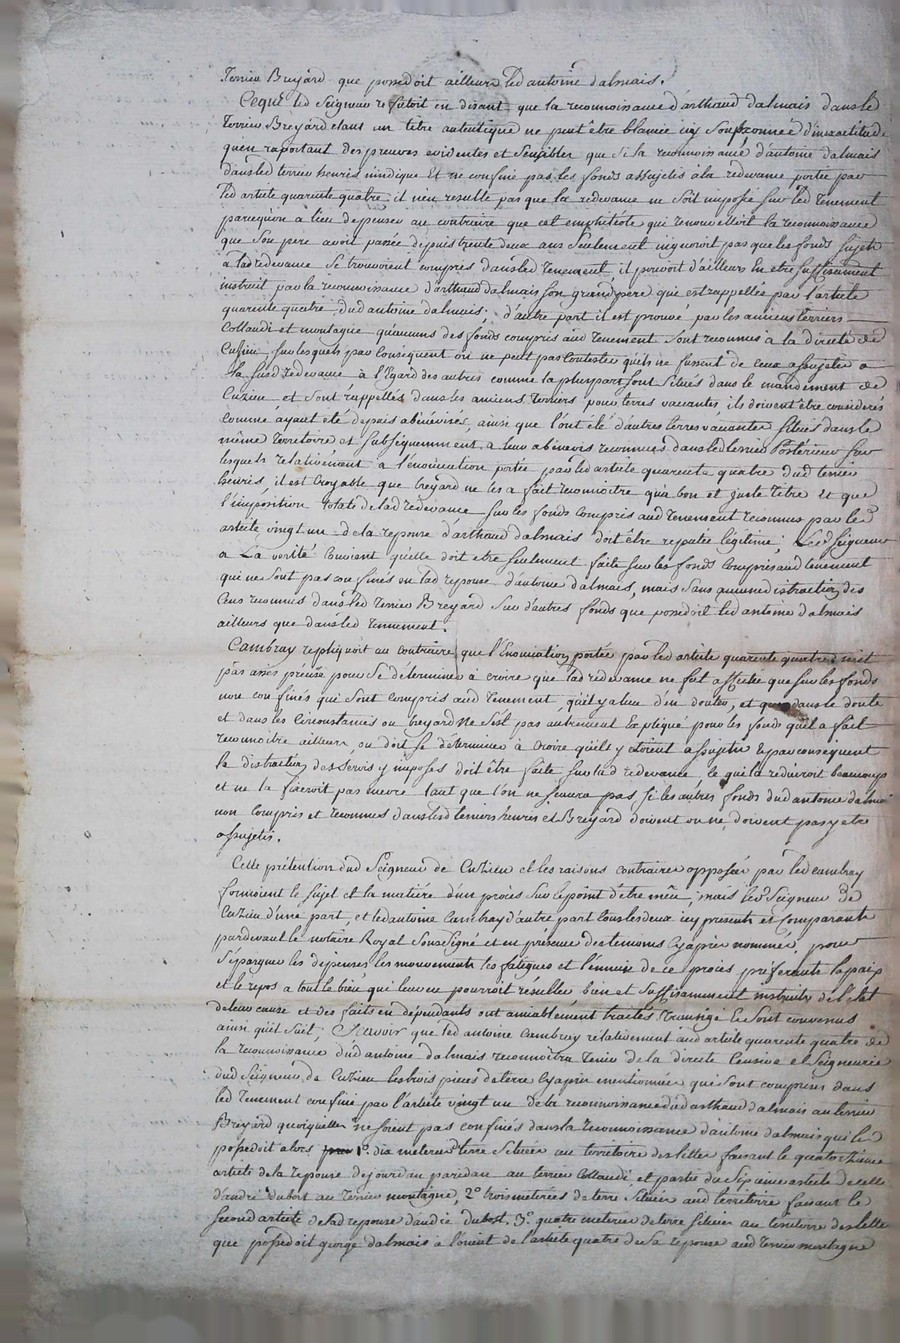 Terrier Breyard que possedoit ailleurs led antoine dalmais.
Ceque led Seigneur refutoit en disant que la reconnoissance d'arthaud dalmais dans led
Terrier Breyard etans un titre autentique ne peut être blamée ny soupçonnée d'inexactitude
quen raportant des preuves evidentes et sensibles que si la reconnoissance d'antoine dalmais
dans led terrier henris n'indique Et ne confine pas les fonds assujetis à la redevance portée par
led article quarente quatre, il n'en resulte pas que la redevance ne soit imposée sur led Tenement
parcequ'on a lieu de penser au contraire que cet emphiteote qui renouvelloit la reconnoissance
que son pere avoit passée depuis trente deux ans seulement n'ignoroit pas que les fonds sujets
à lad redevance se trouvoient compris dans led Tenement, il pouvoit d'ailleurs En etre suffisamment
instruit par la reconnoissance d'arthaud dalmais son grand pere qui est rappellée par l'article
quarente quatre dud antoine dalmais; d'autre part il est prouvé par les anciens terriers
Collaudi et montagne qu'aucuns des fonds compris aud Tenement sont reconnus à la directe de
Cuzieu, sur lesquels par consequent on ne peut pas Contester qu'ils ne fussent de ceux assujetis a
la susd redevance à l'Egard des autres comme la pluspart sont situés dans le mandement de
Cuzieu et sont rappellés dans les anciens Terriers pour terres vacantes, ils doivent être considerés
comme ayant été depuis abénévisés, ainsi que l'ont été d'autres terres vacantes situés dans le
même Territoire et subséquemment a leur abénevis reconnues dans led terrier Postérieur sur
lesquels relativement à l'énonciation portée par led article quarente quatre dud terrier
henris, il est croyable que breyard ne les a fait reconnoitre qu'a bon et juste titre et que
l'imposition totale de lad redevance sur les fonds compris aud Tenement reconnus par led
article vingt un de la reponse d'arthaud dalmais doit être reputée légitime; Led Seigneur
a La verité Convient qu'elle doit etre seulement faite sur les fonds Compris aud tenement
qui ne sont pas confinés en lad reponse d'antoine dalmais, mais sans aucune distraction des
Cens reconnus dans led Terrier Breyard sur d'autres fonds que possedoit led antoine dalmais
ailleurs que dans led Tenement.
Cambray repliquoit au contraire que l'Enonciation portée par led article quarente quatre n'est
pas assés précise pour se déterminer à croire que lad redevance ne fut affectée que sur les fonds
non confinés qui sont compris aud Tenement, qu'il y a lieu d'en douter, et que dans le doute
et dans les circonstances ou breyard ne s'est pas autrement Expliqué pour les fonds quil a fait
reconnoitre ailleurs, on doit se déterminer à croire qu'ils y étoient assujetis & par consequent
la distraction des servis y imposés doit être faite sur lad redevance, ce qui la reduiroit beaucoup
et ne la fixeroit pas encore tant que l'on ne sçaura pas si les autres fonds dud antoine dalmais
non Compris et reconnus dans led terriers henris et Breyard doivent ou ne doivent pas y etre
assujetis.
Cette prétention dud Seigneur de Cuzieu et les raisons contraires opposées par led cambray
formoient le sujet et la matiére d'un procès sur le point d'être mû, mais led Seigneur de
Cuzieu d'une part, et led antoine Cambray d'autre part tous les deux icy presents et Comparants
pardevant le notaire Royal soussigné et en présence des temoins cy après nommés, pour
s'epargner les dépenses les mouvements les fatigues et l'ennuie de ce procès préférants la paix
et le repos a tout le bien qui leur en pourroit résulter bien et suffisamment instruits de l'etat
de leur cause et des faits en dépendants ont amiablement traités Transigé & sont convenus
ainsi quil suit, Sçavoir que led antoine Cambray relativement aud article quarente quatre de
la reconnoissance dud antoine dalmais reconnoitra Tenir de la directe Censive et Seigneurie
dud Seigneur de Cuzieu les trois pieces de terre cy après mentionnées qui sont comprises dans
led Tenement confiné par l'article vingt un de la reconnoissance dud arthaud dalmais au terrier
Breyard quoiqu'elles ne soient pas confinées dans la reconnoissance d'antoine dalmais qui les
possedoit alors 1º. dix meterées terre située au territoire des letter faisant le quatorzieme
article de la reponse de jourdan paredan au terrier Collaudi, et partie du sixieme article de celle
d'andré dubost au Terrier montagne, 2º. trois meterées de terre située aud territoire faisant le
second article de lad reponse d'andré dubost, 3º. quatre meterées de terre située au territoire des letter
que possedoit george dalmais à l'orient de l'article quatre de sa reponse aud Terrier montagne